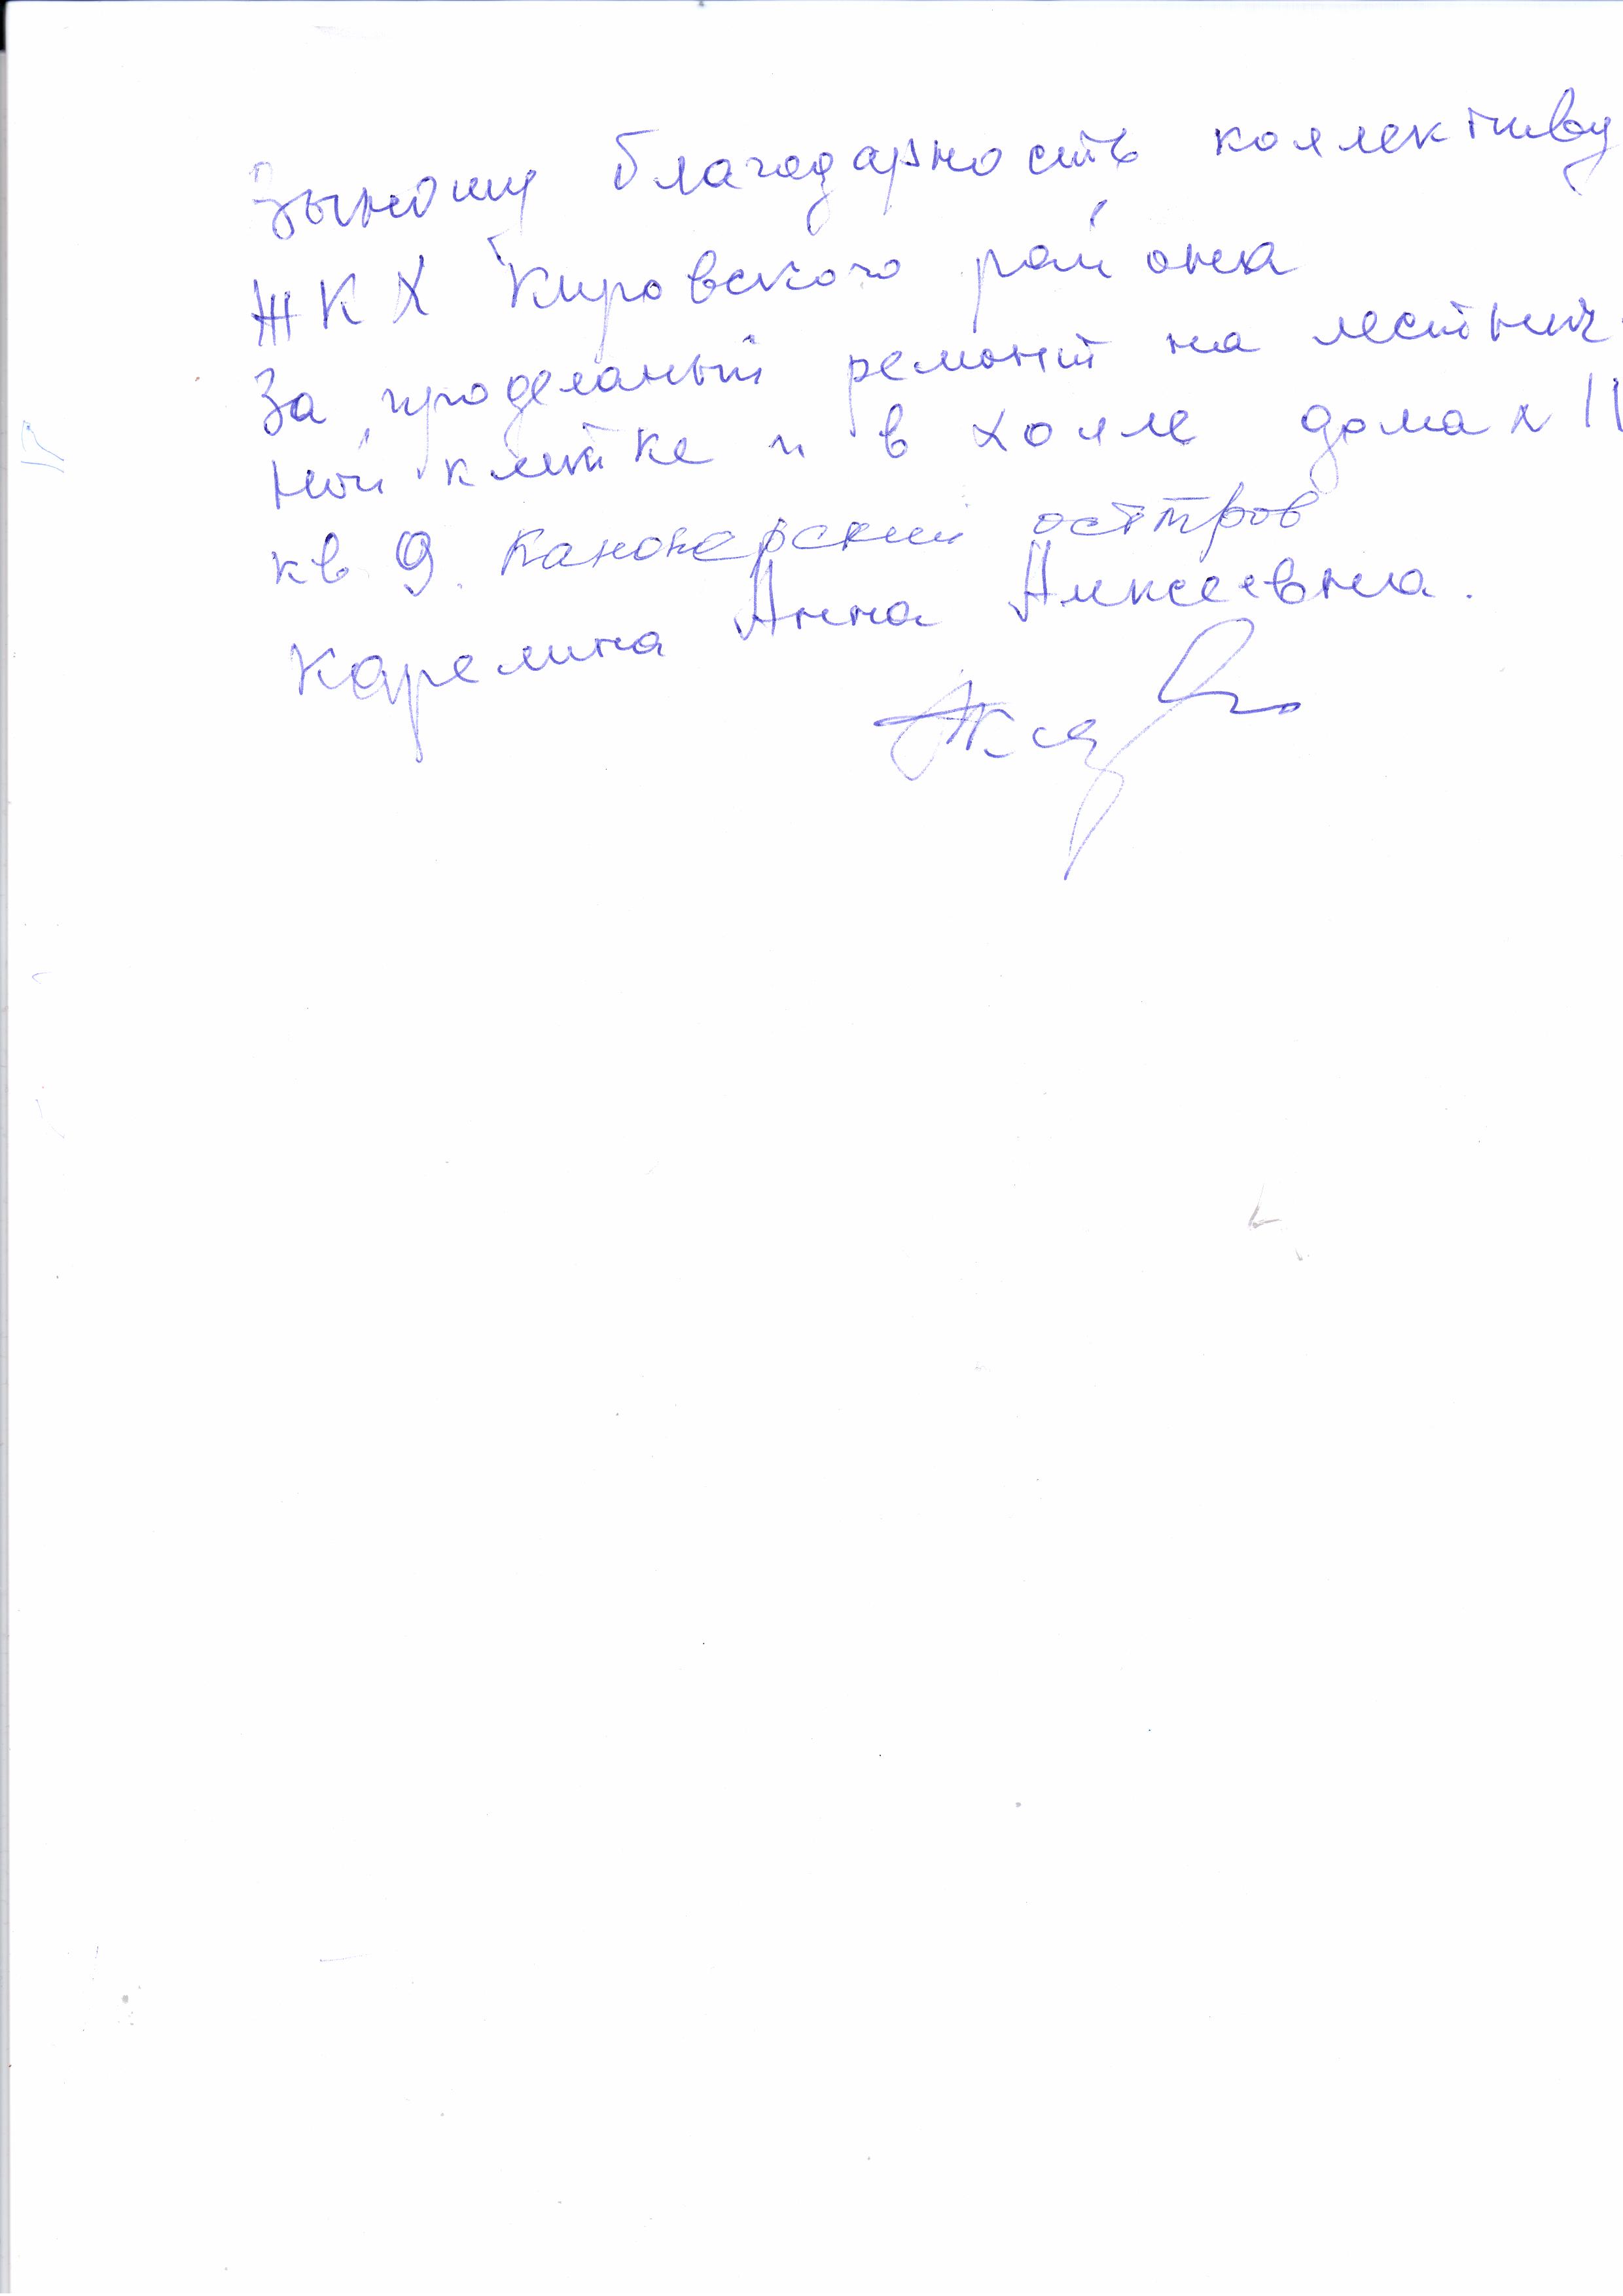 Выношу благодарность коллективу
ЖКХ Кировского района
За проделаный ремонт на лестнич-
ной клетке и в холле дома N 11
кв 9. Канонерский остров
Карелина Анна Алексеевна.